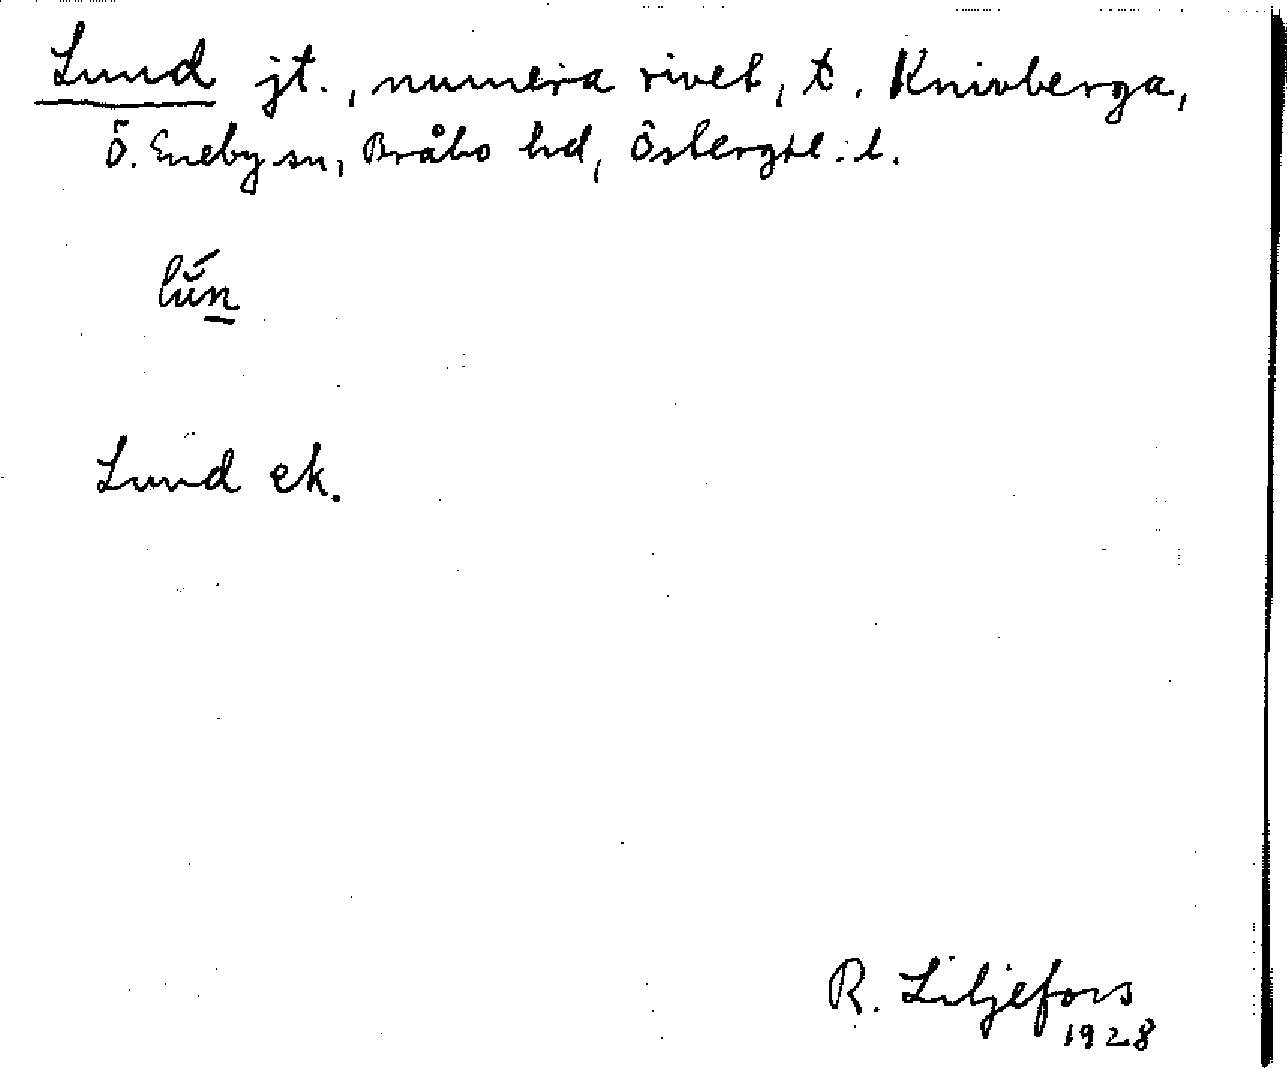 Lund jt., numera rivet, t. Knivberga,
Ö. Eneby sn, Bråbo hd, Östergtl. l.
lŭ́n
Lund ek.
R. Liljefors
1928